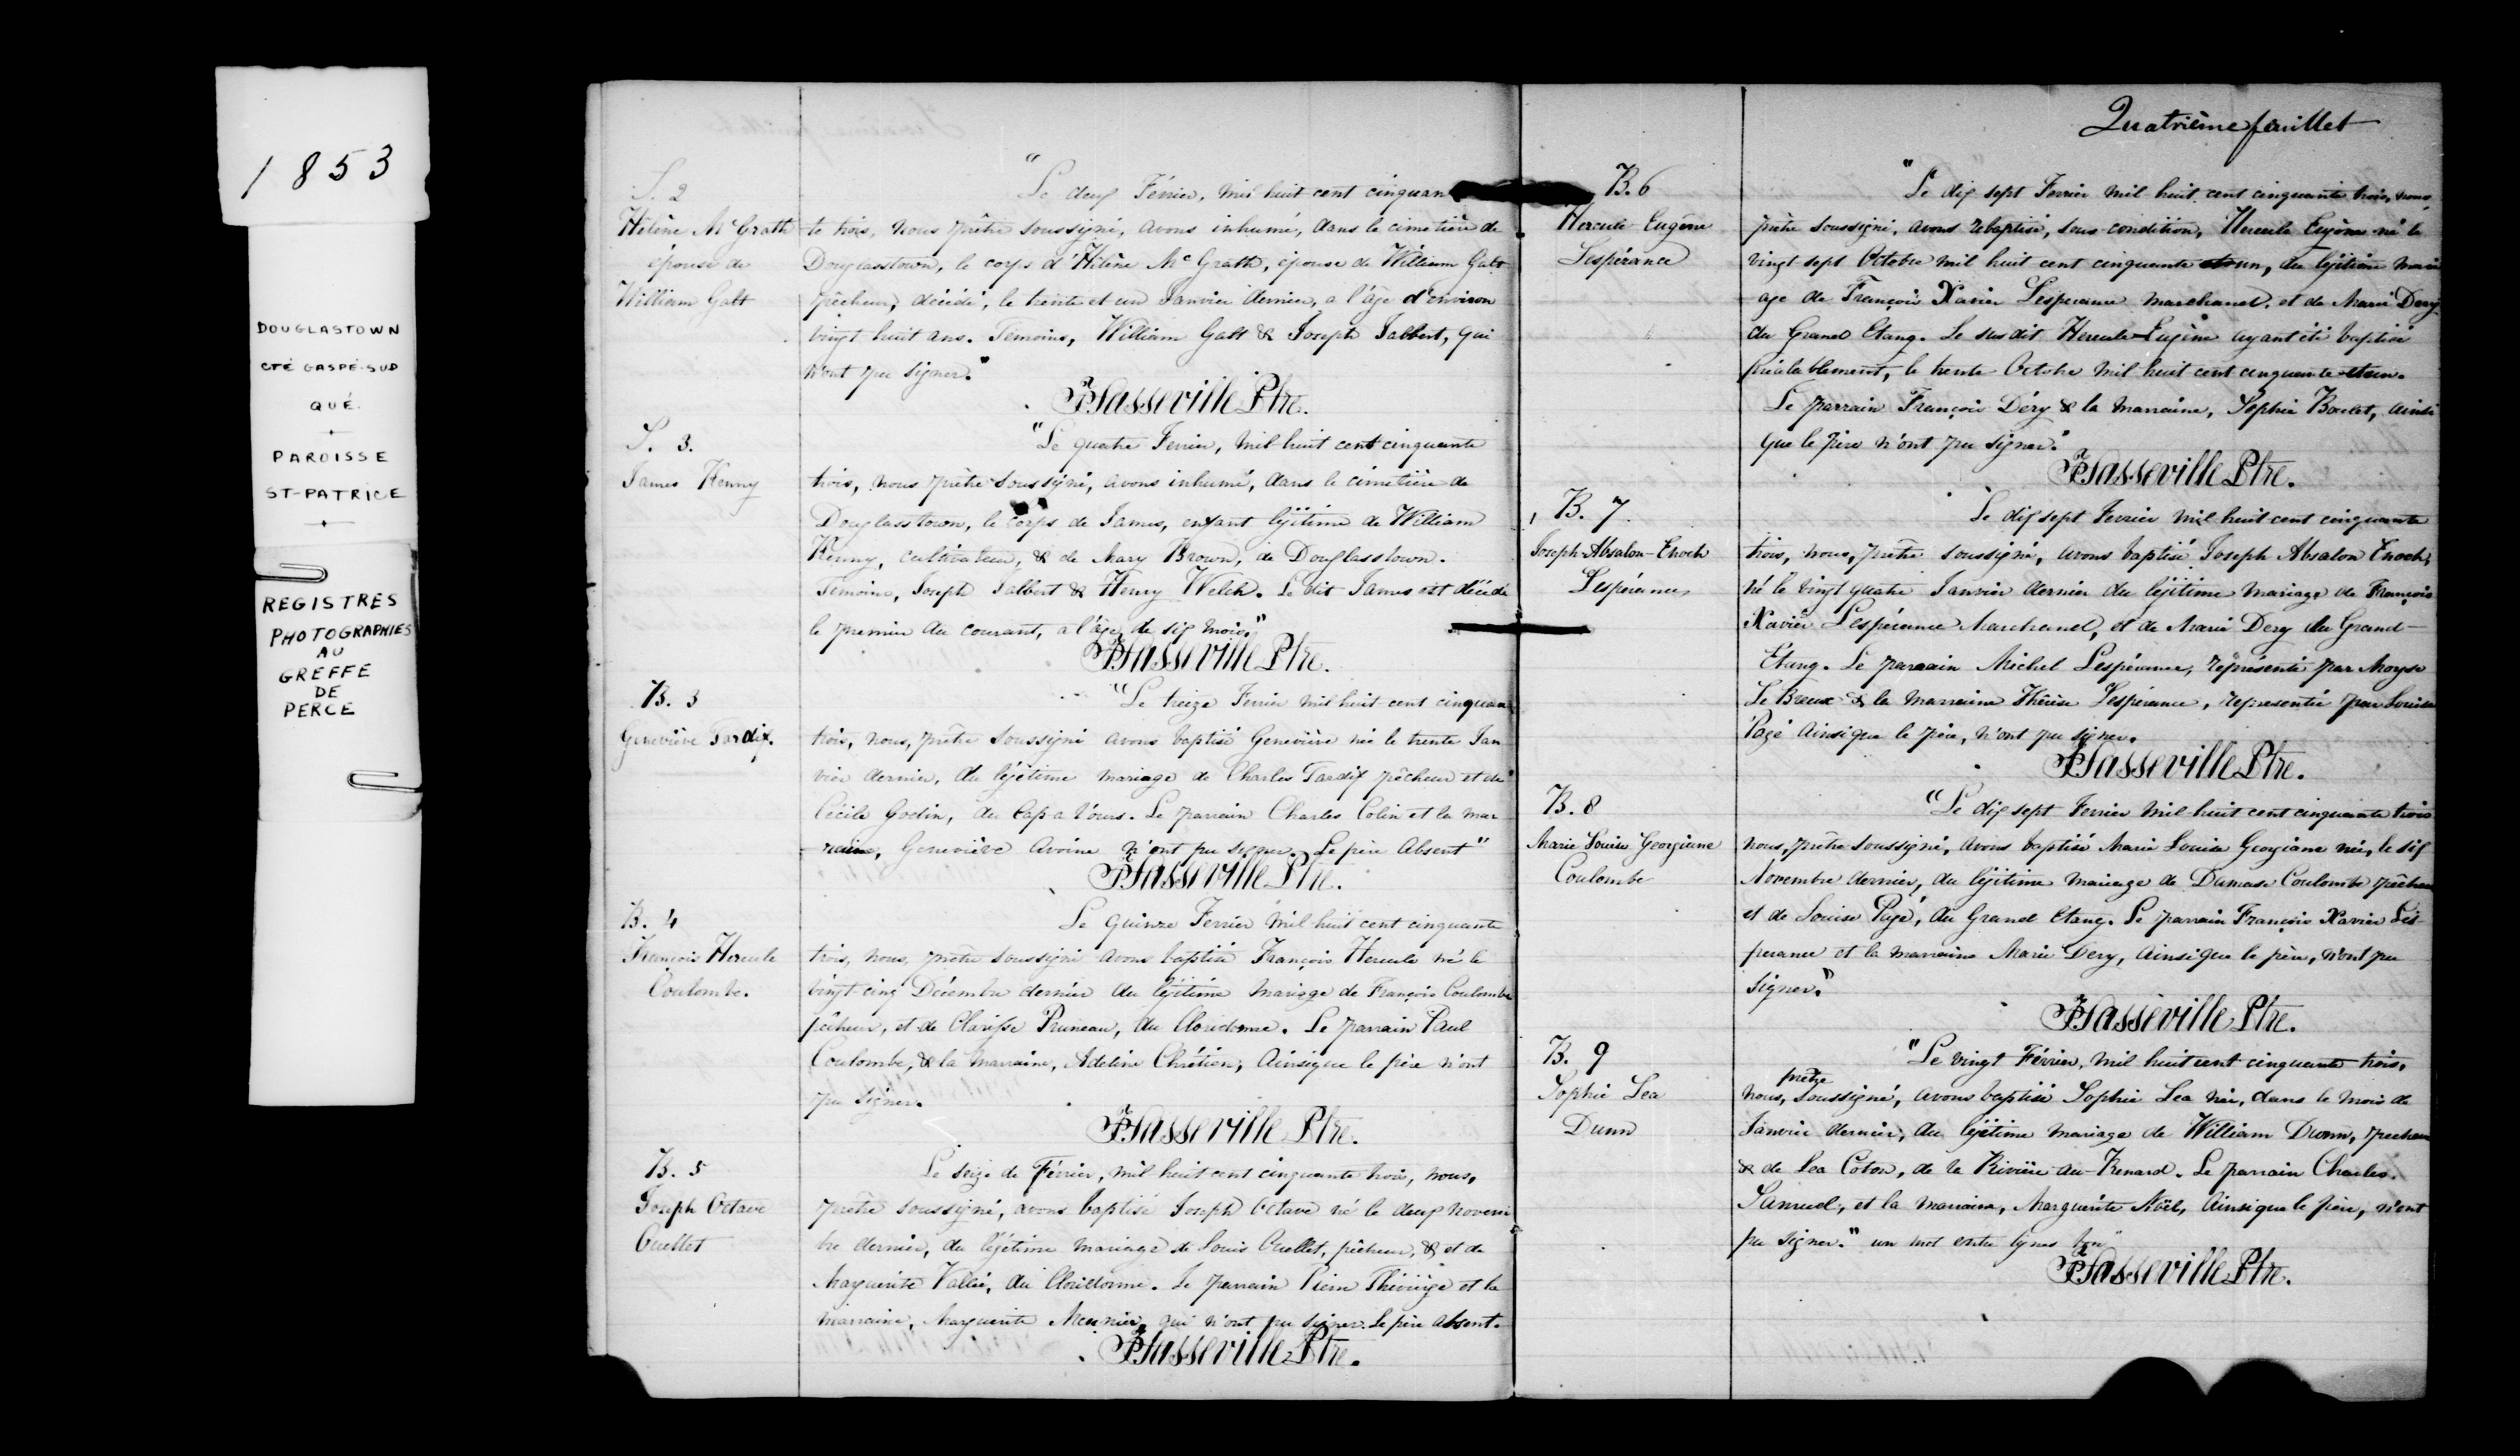 1853
DOUGLASTOWN
CTÉ GASPÉ-SUD
QUÉ.
PAROISSE
ST-PATRICE
REGISTRES
PHOTOGRAPHIES
AU
GREFFE
DE
PERCE
S. 2
Hélène McGrath
épouse de
William Galt
"Le deux Février, mil huit cent cinquan
te trois, nous prêtre soussigné, avons inhumé, dans le cimetière de
Douglasstown, le corps d'Hélène McGrath, épouse de William Galt
pêcheur, décédé, le trente et un Janvier dernier, a l'âge d'environ
vingt huit ans. Temoins, William Galt & Joseph Jalbert, qui
n'ont pu signer."
FHasseville Ptre.
S. 3.
James Kenny
"Le quatre Fevrier, mil huit cent cinquante
trois, nous prêtre soussigné, avons inhumé, dans le cimetière de
Douglasstown, le corps de James, enfant légitime de William
Kenny, cultivateur, & de Mary Brown, de Douglasstown.
Temoins, Joseph Jalbert & Henry Welch. Le dit James est décédé
le premier du courant, a l'âge de six mois."
FHasseville Ptre.
B. 3
Geneviève Tardif.
"Le treize Fevrier mil huit cent cinquan
trois, nous, prêtre soussigné avons baptisé Geneviève née le trente Jan
vier dernier, du légitime mariage de Charles Tardif pêcheur et de
Cécile Godin, du Cap a l'ours. Le parrain Charles Colin et la mar
raine, Geneviève Avoine n'ont pu signer. Le père Absent"
FHasseville Ptre.
B. 4
François Hercule
Coulombe.
Le quinze Fevrier mil huit cent cinquante
trois, nous, prêtre soussigné avons baptisé François Hercule né le
vingt-cinq Décembre dernier du légitime mariage de François Coulombe
pêcheur, et de Clarisse Pruneau, du Cloridorme. Le parrain Paul
Coulombe, & la marraine, Adeline Chrétien, Ainsi que le père n'ont
pu signer.
FHasseville Ptre.
B. 5
Joseph Octave
Ouellet
Le seize de Février, mil huit cent cinquante trois, nous,
prêtre soussigné, avons baptisé Joseph Octave né le deux novem
bre dernier, du légitime mariage de Louis Ouellet, pêcheur, & et de
Marguerite Vallée, du Cloridorme. Le parrain Pierre Thivierge et la
marraine, Marguerite Meunier, qui n'ont pu signer. Le père absent.
FHasseville Ptre.
Quatrième feuillet
B. 6
Hercule Eugène
Lespérance
"Le dix sept Fevrier mil huit cent cinquante trois, nous
prêtre soussigné, avons rebaptisé, sous condition, Hercule Eugène né le
vingt sept Octobre mil huit cent cinquante et un, du légitime mari
age de François Xavier Lesperance marchand, et de Marie Dery
du Grand Etang. Le susdit Hercule Eugène ayant été baptisé
préalablement, le trente Octobre mil huit cent cinquante et un.
Le parrain François Déry & la marraine, Sophie Boulet, ainsi
que le Père n'ont pu signer."
FHasseville Ptre.
B. 7
Joseph-Absalon-Enoch
Lespérance
Le dix sept Fevrier mil huit cent cinquante
trois, nous, prêtre soussigné, avons baptisé Joseph Absalon Enoch,
né le vingt quatre Janvier dernier du légitime mariage de François
Xavier Lespérance Marchand, et de Marie Dery du Grand-
Etang. Le parrain Michel Lespérance, représenté par Moyse
Le Breux & la marraine Thérèse Lespérance, representée par Louise
Pagé Ainsi que le père, n'ont pu signer.
FHasseville Ptre.
B. 8
Marie Louise Georgiane
Coulombe
"Le dix sept Fevrier mil huit cent cinquante trois
nous, prêtre soussigné, avons baptisé Marie Louise Georgiane née, le six
Novembre dernier, du légitime mariage de Damase Coulombe pêcheur
et de Louise Pagé, du Grand Etang. Le parrain François Xavier Les-
perance et la marraine Marie Dery, Ainsi que le père, n'ont pu
signer."
FHasseville Ptre.
B. 9
Sophie Lea
Dunn
"Le vingt Février, mil huit cent cinquante trois,
prêtre
nous, soussigné, avons baptisé Sophie Lea née, dans le mois de
Janvier dernier, du légitime mariage de William Dunn, pecheur
& de Lea Coton, de la Rivière-au-Renard. Le parrain Charles
Samuel, et la marraine, Marguerite Noël, Ainsi que le père, n'ont
pu signer." un mot entre lignes bon"
FHasseville Ptre.